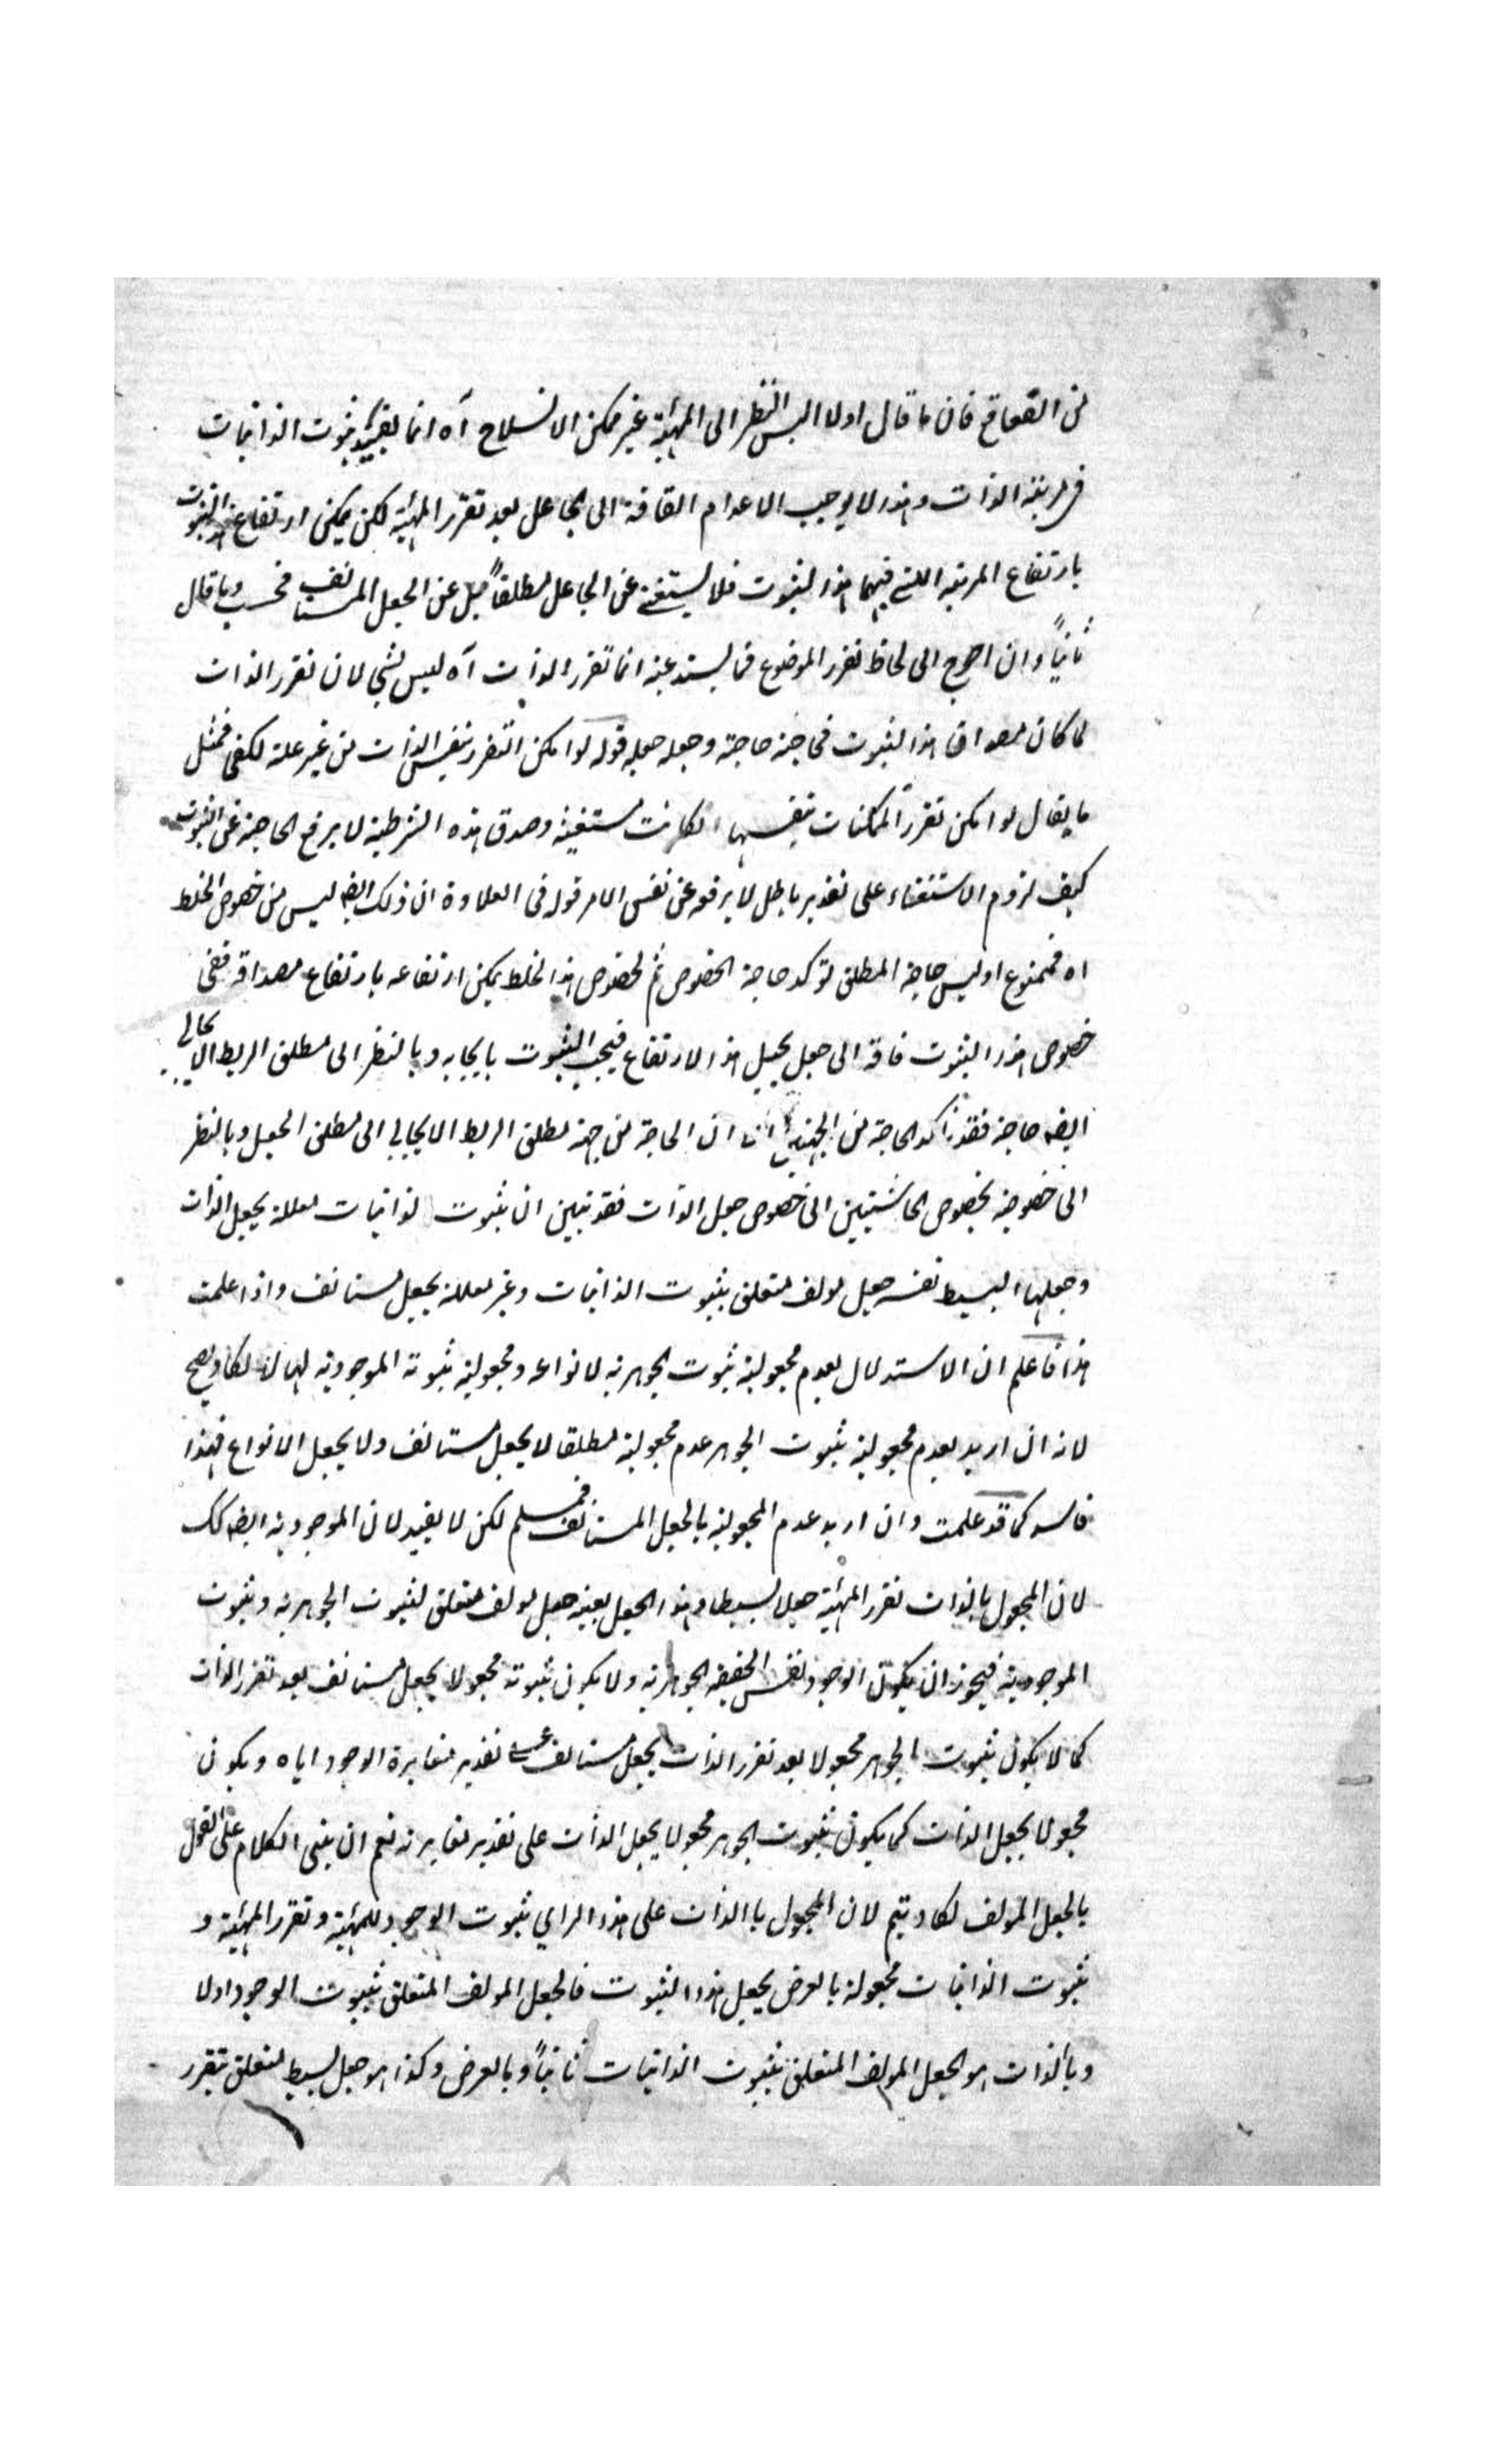 من القعاقع فان ما قال اولا اليس النظر الى المهية غير ممكن الانسلاخ آه انما يفيد ثبوت الذاتيات
فى مرتبة الذات وهذا لا يوجب الا عدم الفاقة الى الجاعل بعد تقرر المهية لكن يمكن ارتفاع هذا الثبوت
بارتفاع المرتبة اللتى فيها هذا الثبوت فلا يستغنى عن الجاعل مطلقاً بل عن الجعل المستانف فحسب وما قال
ثانياً وان احوج الى لحاظ تقرر الموضوع فما يستدعيه انما تقرر الذات آه ليس بشئ لان تقرر الذات
لما كان مصداق هذا الثبوت فحاجته حاجته وجعله جعله قوله لو امكن التقرر بنفس الذات من غير علة لكفى فمثل
ما يقال لو امكن تقرر الممكنات بنفسها لكانت مستغنية وصدق هذه الشرطية لا يرفع الحاجة عن الثبوت
كيف لزوم الاستغناء على تقدير باطل لا يرفعه عن نفس الامر قوله فى العلاوة ان ذلك ايضا ليس من خصوص الخلط
اه فممنوع اوليس حاجة المطلق تؤكد حاجة الخصوص ثم لخصوص هذا الخلط يمكن ارتفاعه بارتفاع مصداقه ففى
خصوص هذا الثبوت فاقة الى جعل يحيل هذا الارتفاع فيجب الثبوت بايجابه وبالنظر الى مطلق الربط الايجابى
ايضا حاجة فقد تاكد الحاجة من الجهتين ان الحاجة من جهة مطلق الربط الايجابي الى مطلق الجعل وبالنظر
الى خصوصية بخصوص الحاشيتين الى خصوص جعل الذات فقد تبين ان ثبوت الذاتيات معللة بجعل الذات
وجعلها البسيط نفسه جعل مولف متعلق بثبوت الذاتيات وغير معللة بجعل مستانف واذا علمت
هذا فاعلم ان الاستدلال بعدم مجعولية ثبوت الجوهرية لانواعه ومجعولية ثبوتة الموجودية لها لا يكاد يصح
لانه ان اريد بعدم مجعولية ثبوت الجوهر عدم مجعولية مطلقا لا بجعل مستانف ولا بجعل الانواع فهذا
فاسد كما قد علمت وان اريد عدم المجعولية بالجعل المستانف فمسلم لكن لا يفيد لان الموجودية ايضا كك
لان المجعول بالذات تقرر المهية جعلا بسيطا وهذا الجعل بعينه جعل مولف متعلق لثبوت الجوهرية وثبوت
الموجودية فيجوز ان يكون الوجود نفس الحقيقة الجوهرية ولا يكون ثبوته مجعولا بجعل مستانف بعد تقرر الذات
كما لا يكون ثبوت الجوهر مجعولا بعد تقرر الذات بجعل مستانف على تقدير مغايرة الوجود اياه ويكون
مجعولا بجعل الذات كما يكون ثبوت الجوهر مجعولا بجعل الذات على تقدير مغايرته نعم ان بنى الكلام على القول
بالجعل المولف لكاد يتم لان المجعول بالذات على هذا الراي ثبوت الوجود للمهية وتقرر المهية و
ثبوت الذاتيات مجعولة بالعرض بجعل هذا الثبوت فالجعل المولف المتعلق بثبوت الوجود اولا
وبالذات هو الجعل المولف المتعلق بثبوت الذاتيات ثانياً وبالعرض وكذا هو جعل بسيط متعلق بتقرر